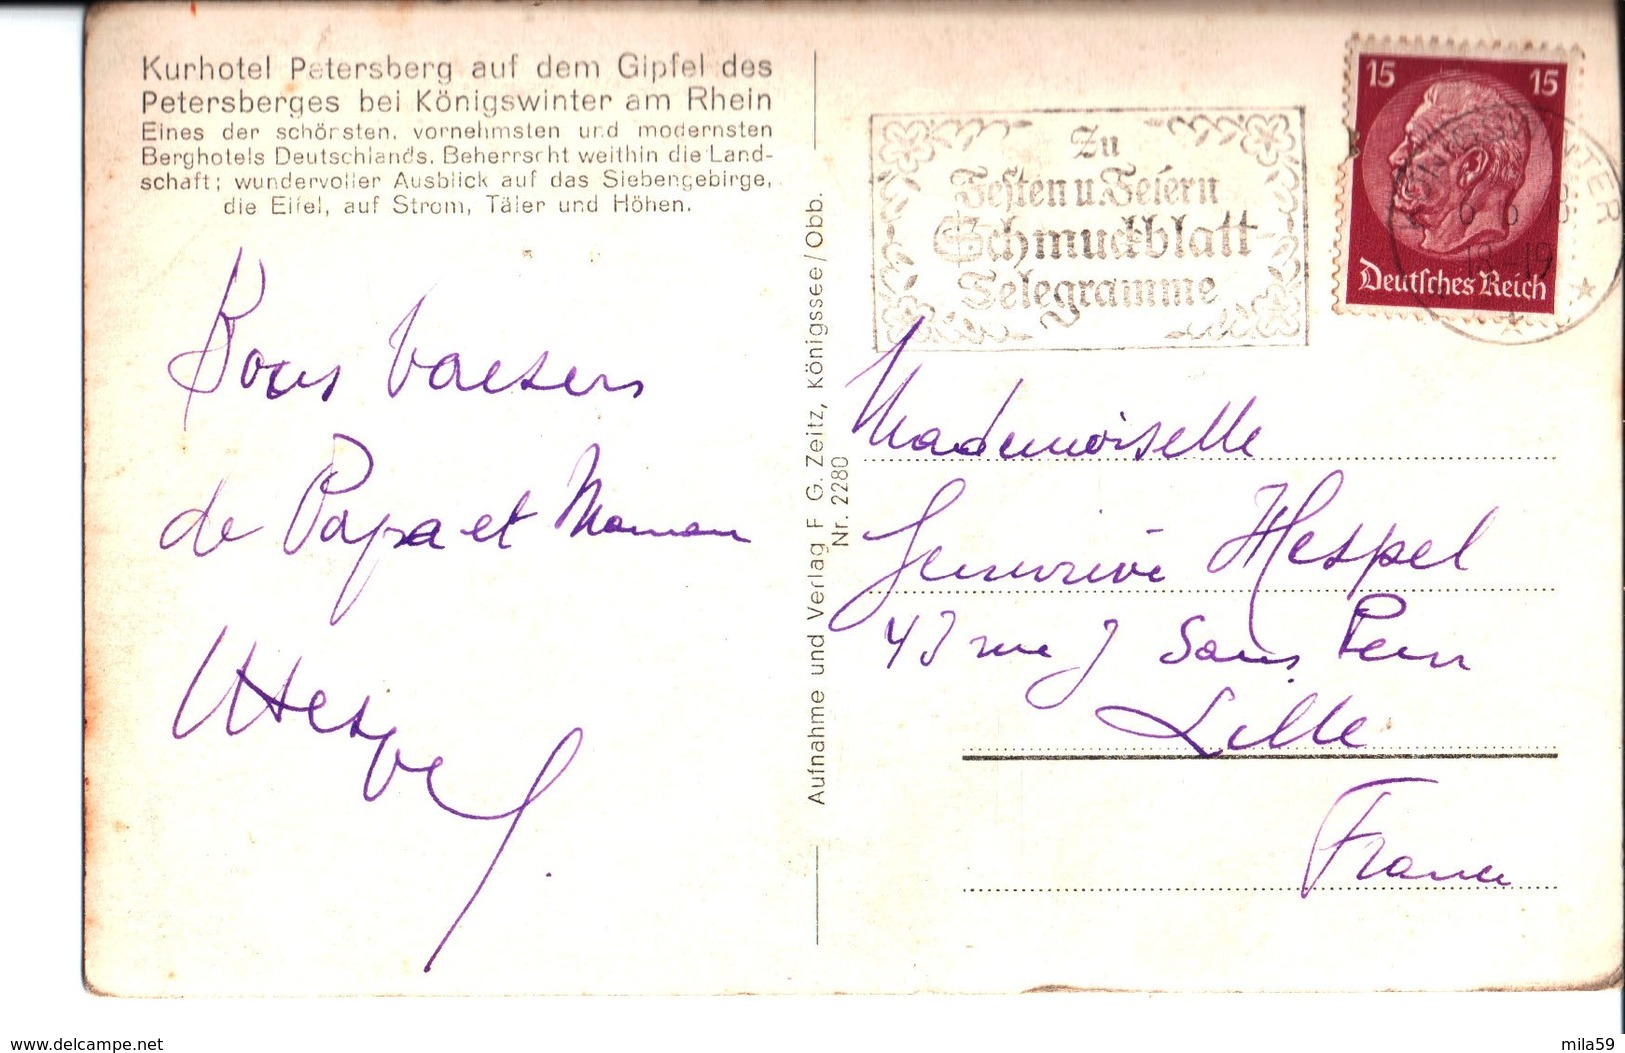 Kurhotel Petersberg auf dem Gipfel des
Petersberges bei Königswinter am Rhein
Eines der schönsten, vornehmsten und modernsten
Berghotels Deutschlands. Beherrscht weithin die Land-
schaft; wundervoller Ausblick auf das Siebengebirge,
die Eifel, auf Strom, Täler und Höhen.
Bons baisers
de Papa et Maman
Hespel
Aufnahme und Verlag F. G. Zeitz, Königssee/Obb.
Nr. 2280
Zu
Festen u. Feiern
Schmuckblatt-
Telegramme
15 15
Deutsches Reich
KÖNIGSWINTER
6 6 38
18-19
Mademoiselle
Geneviève Hespel
43 rue J Sans Peur
Lille
France
www.delcampe.net
mila59